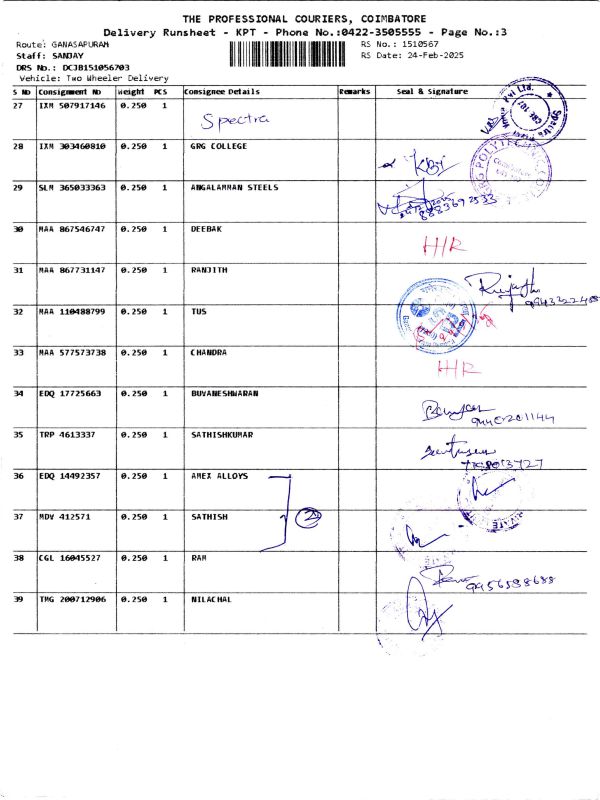 THE PROFESSIONAL COURIERS, COIMBATORE
Delivery Runsheet - KPT - Phone No.:0422-3505555 - Page No.:3
Route: GANASAPURAM RS No.: 1510567
Staff: SANJAY RS Date: 24-Feb-2025
DRS No.: DCJB151056703
Vehicle: Two Wheeler Delivery
S No Consignment No Weight PCS Consignee Details Remarks Seal & Signature
27 IXM 507917146 0.250 1 Spectra
28 IXM 303460810 0.250 1 GRG COLLEGE
29 SLM 365033363 0.250 1 ANGALAMMAN STEELS
30 MAA 867546747 0.250 1 DEEBAK H/R
31 MAA 867731147 0.250 1 RANJITH
32 MAA 110488799 0.250 1 TUS
33 MAA 577573738 0.250 1 CHANDRA H/R
34 EDQ 17725663 0.250 1 BUVANESHWARAN
35 TRP 4613337 0.250 1 SATHISHKUMAR
36 EDQ 14492357 0.250 1 AMEX ALLOYS
37 MDV 412571 0.250 1 SATHISH 2
38 CGL 16045527 0.250 1 RAM
39 TMG 200712906 0.250 1 NILACHAL